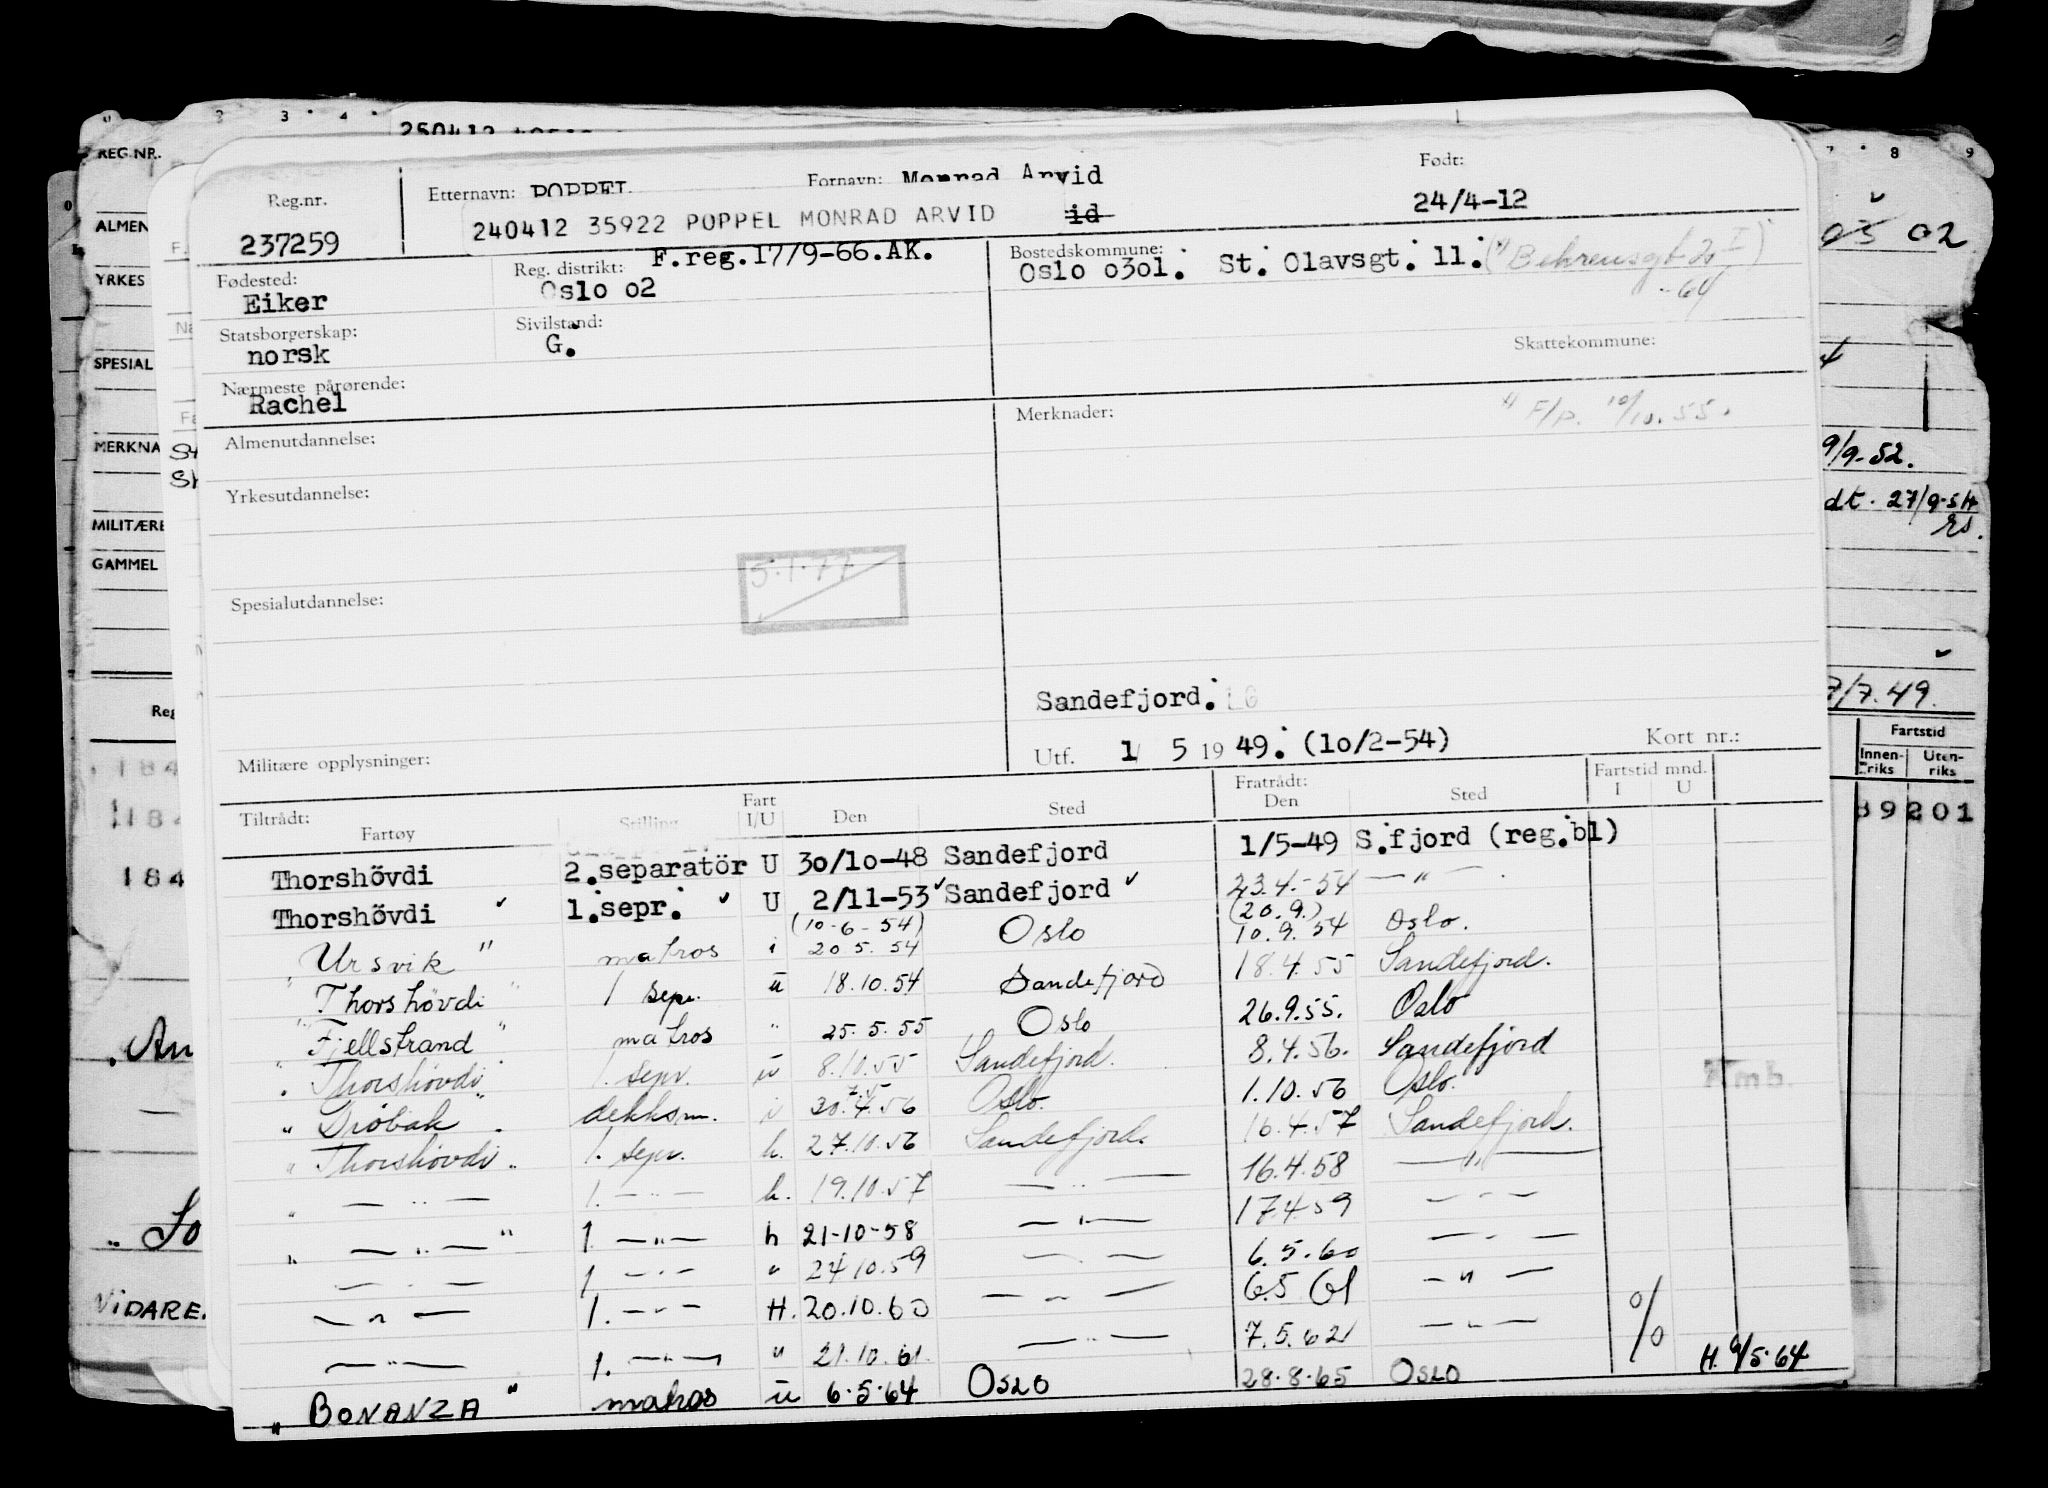 250412
REG.NR. 2 3 4 7 8 9
Reg.nr. 237259
Etternavn: POPPEL Fornavn: Monrad Arvid Født: 24/4-12
240412 35922 POPPEL MONRAD ARVID id
F.reg.17/9-66.AK.
Fødested: Eiker
Reg. distrikt: Oslo o2
Bostedskommune: Oslo o3ol. St. Olavsgt. 11. (Behrensgt 2 I)
-64
Statsborgerskap: norsk
Sivilstand: G.
Skattekommune:
Nærmeste pårørende: Rachel
Almenutdannelse:
Merknader: F/p. 10/10.55.
Yrkesutdannelse:
5.1.77
Spesialutdannelse:
Sandefjord. LG
Militære opplysninger:
Utf. 1/ 5 19 49. (lo/2-54) Kort nr.:
Tiltrådt: Fartøy Stilling Fart I/U Den Sted Fratrådt: Den Sted Fartstid mnd. I U
Thorshövdi 2.separatör U 3o/lo-48 Sandefjord 1/5-49 S.fjord (reg.bl)
Thorshövdi 1.sepr. U 2/11-53 Sandefjord 23.4.-54 — " —
"Ursvik" matros i (10-6-54) 20.5.54 Oslo (20.9.) 10.9.54 Oslo.
"Thorshövdi" 1 sepr. u 18.10.54 Sandefjord 18.4.55 Sandefjord.
"Fjellstrand" matros " 25.5.55 Oslo 26.9.55. Oslo
"Thorshövdi" 1. sepr. u 8.10.55 Sandefjord. 8.4.56. Sandefjord
"Drøbak" dekksm. i 7.5 30.4.56 Oslo. 1.10.56 Oslo.
"Thorshövdi" 1. sepr. h. 27.10.56 Sandefjord. 16.4.57 Sandefjord.
" — " — 1. — " — h. 19.10.57 — " — 16.4.58 — " —
" — " — " 1. — " — h 21-10-58 — " — 17.4.59 — " —
— " — 1 — " — " 24.10.59 — " — 6.5.60 — " —
— " — 1. — " — H. 20.10.60 — " — 6.5 61 — " —
— " — 1. — " — " 21.10.61. — " — 7.5.62 — " —
"BONANZA" matros u 6.5.64 OSLO 28.8.65 OSLO H. 9/5.64
ALMEN
YRKES
SPESIAL
MERKNA
MILITÆRE
GAMMEL
Reg
184
184
184
VIDARE.
05 02
9/9-52.
dt. 27/9-54
7/7.49.
Fartstid
Innenriks Utenriks
89 201